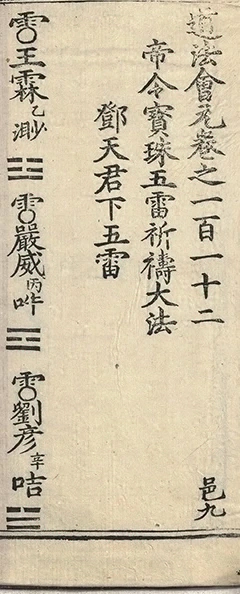 道法會元卷之一百一十二 邑九
帝令寶珠五雷祈禱大法
鄧天君下五雷
王霖乙 ☷ 嚴威丙吽 ☲ 劉彥辛咭